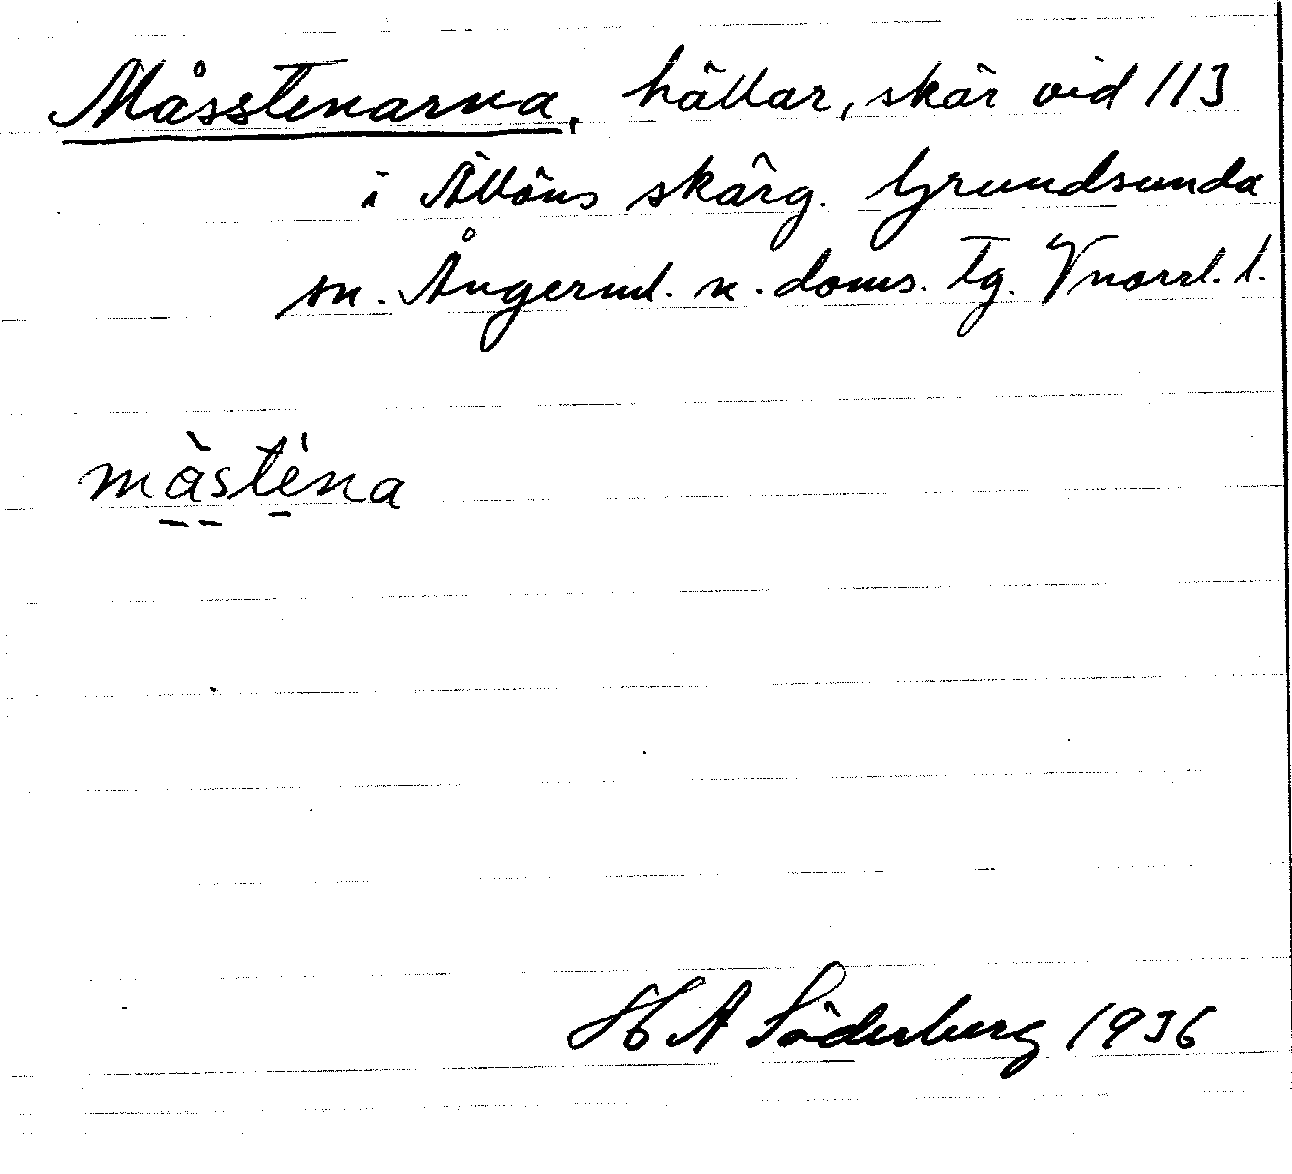 Måsstenarna, hällar, skär vid 113
i Ällöns skärg. Grundsunda
sn. Ångerml. n. doms. Tg. Vnorrl. l.
måste̍na
H A Söderberg 1936